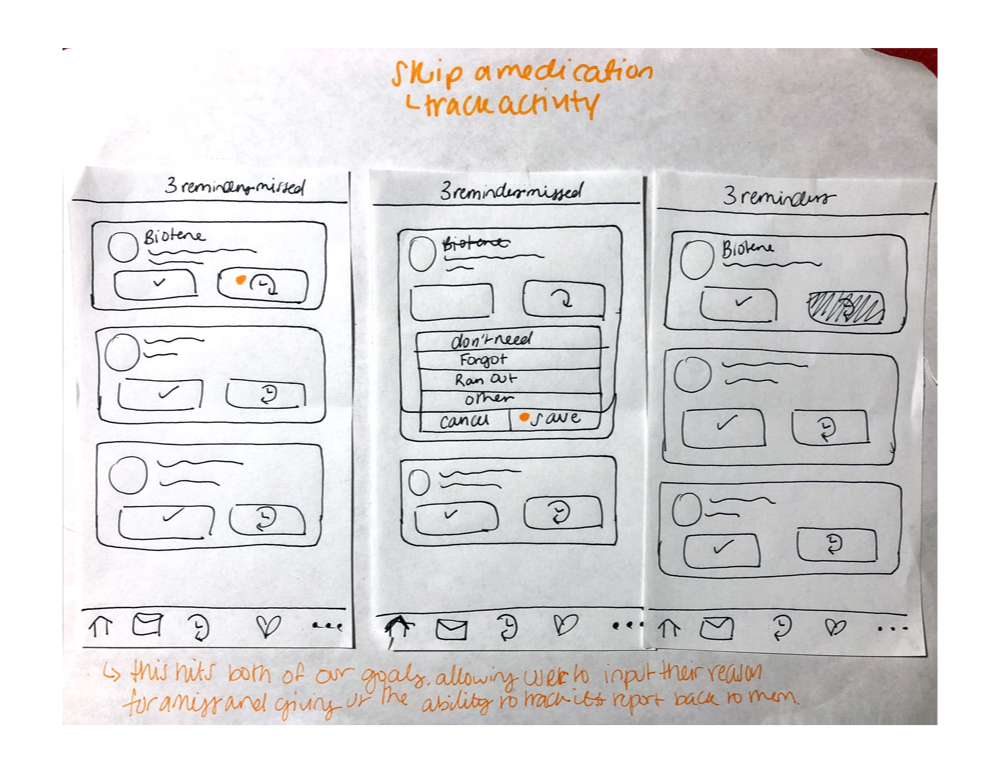 Skip a medication
↳ track activity
3 reminders missed
Biotene
3 reminders missed
Biotene
don't need
Forgot
Ran Out
other
cancel
save
3 reminders
Biotene
↳ this hits both of our goals. allowing user to input their reason
for a miss and giving us the ability to track it & report back to them.